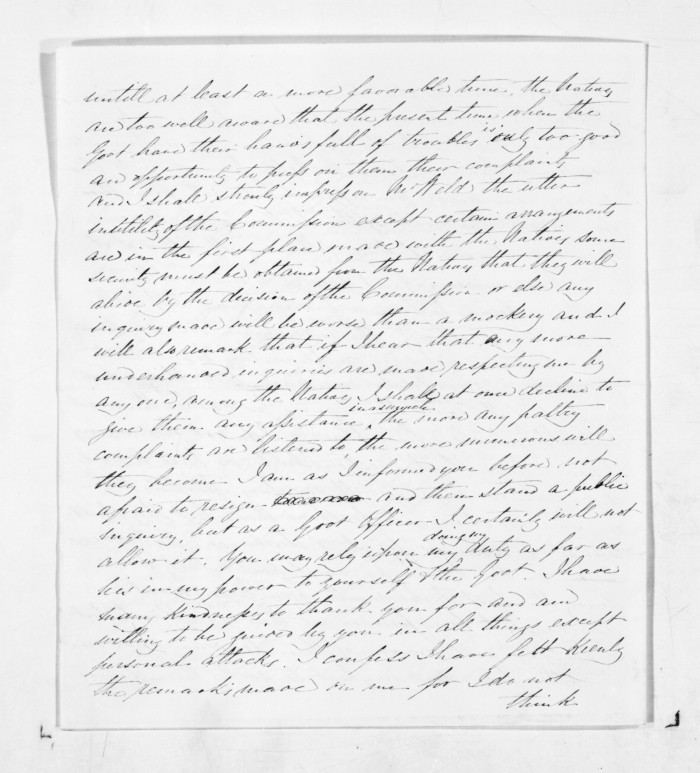 untill at least a more favorable time. the Natives
are too well aware that the present time when the
Govt have their hands full of troubles is only too good
an opportunity to press on them their complaints
and I shall strongly impress on Mr Weld the utter
inutility of the Commission except certain arrangements
are in the first place made with the Natives some
security must be obtained from the Natives that they will
abide by the decision of the Commission or else any
inquiry made will be worse than a mockery and I
will also remark that if I hear that any more
underhanded inquiries are made respecting me by
any one, among the Natives I shall at once decline to
give them any assistance, inasmuch the more any paltry
complaints are listened to, the more numerous will
they become I am as I informed you before not
afraid to resign and then stand a public
inquiry, but as a Govt Officer I certainly will not
allow it. You may rely upon my doing my duty as far as
lies in my power to yourself & the Govt. I have
many kindnesses to thank you for and am
willing to be guided by you in all things except
personal attacks. I confess I have felt keenly
the remarks made on me for I do not
think